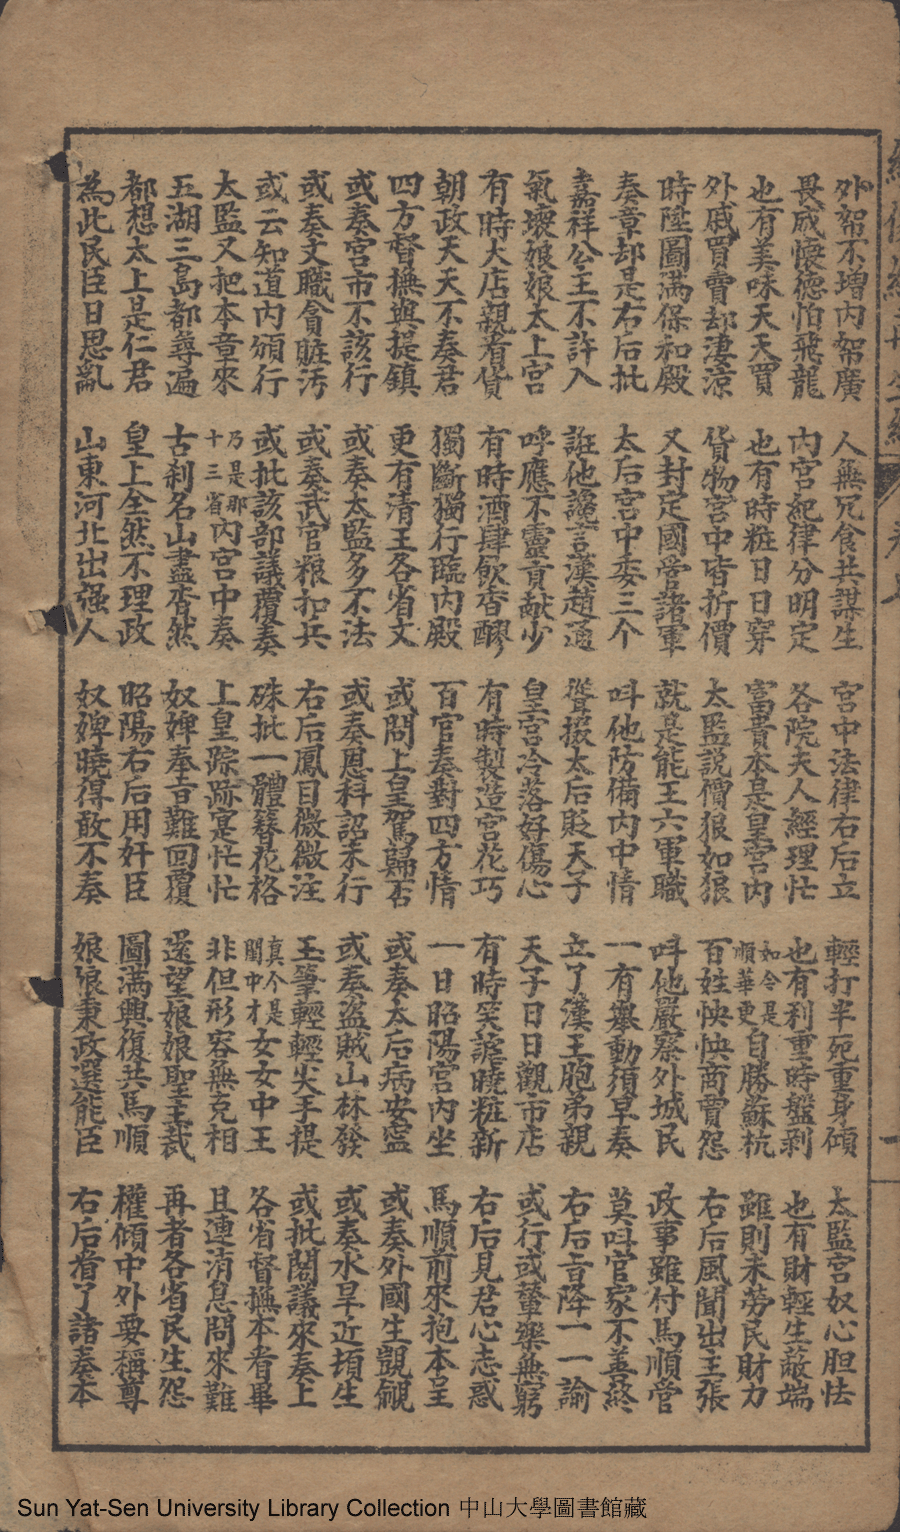 外帑不增內帑廣 人無冗食共謀生 宮中法律右后立 輕打半死重身傾 太監宮奴心胆怯
畏威懷德怕飛龍 內宮紀律分明定 各院夫人經理忙 也有利重時盤剥 也有財輕生蔽端
也有美味天天買 也有時粧日日穿 富貴本是皇宮內 如今是順華更自勝蘇杭 雖則未勞民財力
外戚買賣却淒涼 貨物宮中皆折價 太監説價狠如狼 百姓怏怏商賈怨 右后風聞出主張
時陞圖滿保和殿 又封定國管諸軍 就是能王六軍職 呌他嚴察外城民 政事雖付馬順管
奏章却是右后批 太后宮中委三个 呌他防備內中情 一有舉動須早奏 莫呌官家不善終
嘉祥公主不許入 誑他讒言漢趙通 聳掇太后貶天子 立了漢王胞弟親 右后旨降一一諭
氣壞娘娘太上宮 呼應不靈貢献少 皇宮冷落好傷心 天子日日觀市店 或行或蟄樂無窮
有時大店親看貨 有時酒肆飲香醪 有時製造宮花巧 有時笑謔曉粧新 右后見君心志惑
朝政天天不奏君 獨斷獨行臨內殿 百官奏對四方情 一日昭陽宮內坐 馬順前來抱本呈
四方督撫與提鎮 更有清王各省文 或問上皇駕歸否 或奏太后病安寍 或奏外國生覬覦
或奏宮市不該行 或奏太監多不法 或奏恩科詔未行 或奏盗賊山林發 或奏水旱近填生
或奏文職貪賍污 或奏武官粮扣兵 右后鳳目微微注 玉筆輕輕尖手提 或批閣議來奏上
或云知道內頒行 或批該部議覆奏 硃批一體簪花格 真个是閨中才女女中王 各省督撫本看畢
太監又把本章來 乃是那十三省內宮中奏 上皇踪跡寔忙忙 非但形容無克相 且連消息問來難
五湖三島都尋遍 古刹名山盡杳然 奴婢奉旨難回覆 遥望娘娘聖主裁 再者各省民生怨
都想太上是仁君 皇上全然不理政 昭陽右后用奸臣 圖滿興復共馬順 權傾中外要稱尊
為此民臣日思亂 山東河北出强人 奴婢曉得敢不奏 娘娘秉政選能臣 右后看了諸奏本
Sun Yat-Sen University Library Collection 中山大學圖書館藏